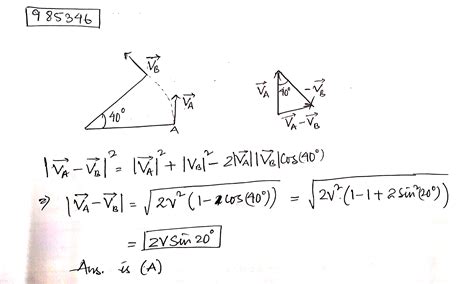 985346
V⃗_B
V⃗_A
40°
A
V⃗_A
40°
-V⃗_B
V⃗_A - V⃗_B
|V⃗_A - V⃗_B|² = |V⃗_A|² + |V_B|² - 2|V⃗_A||V⃗_B|cos(40°)
⇒ |V⃗_A - V⃗_B| = √(2v²(1-cos(40°))) = √(2v²·(1-1+2sin²(20°)))
= 2V sin 20°
Ans. is (A)